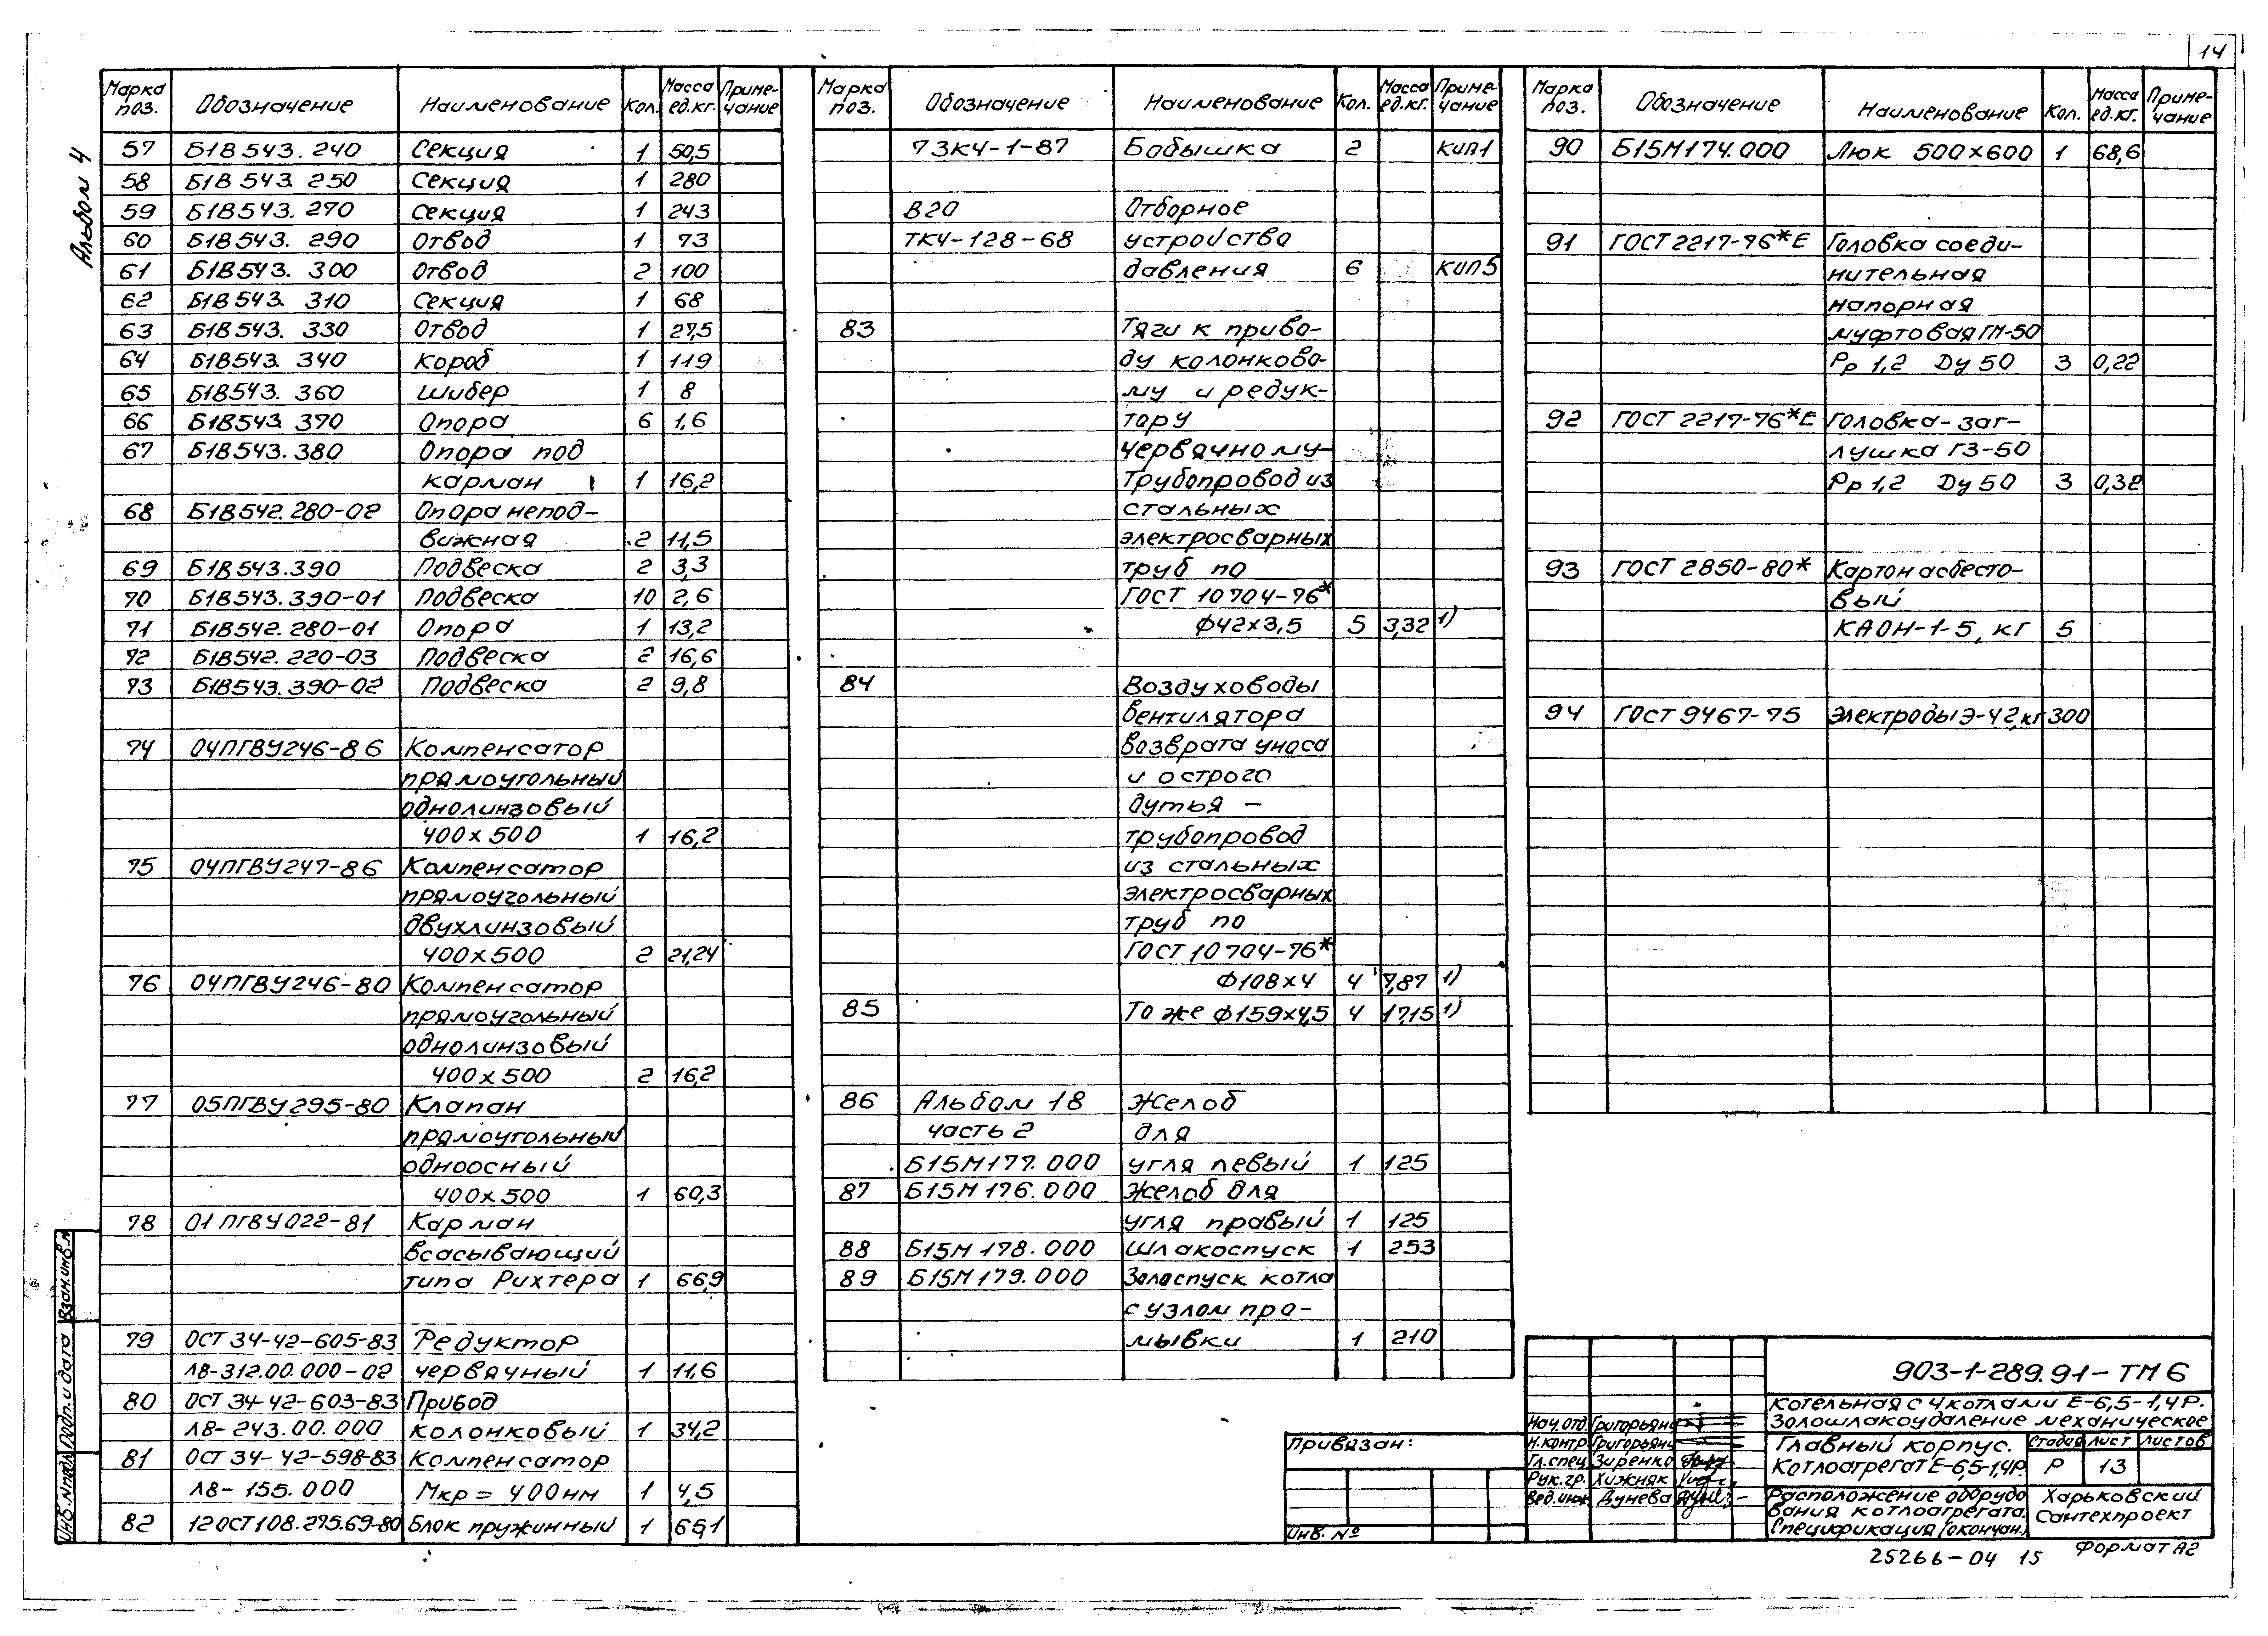 14
Альбом 4
Марка поз. Обозначение Наименование Кол. Масса ед.кг. Приме-чание
57 Б1В543.240 Секция 1 50,5
58 Б1В543.250 Секция 1 280
59 Б1В543.270 Секция 1 243
60 Б1В543.290 Отвод 1 73
61 Б1В543.300 Отвод 2 100
62 Б1В543.310 Секция 1 68
63 Б1В543.330 Отвод 1 27,5
64 Б1В543.340 Короб 1 119
65 Б1В543.360 Шибер 1 8
66 Б1В543.370 Опора 6 1,6
67 Б1В543.380 Опора под
карман 1 16,2
68 Б1В542.280-02 Опора непод-
вижная 2 11,5
69 Б1В543.390 Подвеска 2 3,3
70 Б1В543.390-01 Подвеска 10 2,6
71 Б1В542.280-01 Опора 1 13,2
72 Б1В542.220-03 Подвеска 2 16,6
73 Б1В543.390-02 Подвеска 2 9,8
74 04ПГВУ246-86 Компенсатор
прямоугольный
однолинзовый
400х500 1 16,2
75 04ПГВУ247-86 Компенсатор
прямоугольный
двухлинзовый
400х500 2 21,24
76 04ПГВУ246-80 Компенсатор
прямоугольный
однолинзовый
400х500 2 16,2
77 05ПГВУ295-80 Клапан
прямоугольный
одноосный
400х500 1 60,3
78 01ПГВУ022-81 Карман
всасывающий
типа Рихтера 1 66,9
79 ОСТ 34-42-605-83 Редуктор
Л8-312.00.000-02 червячный 1 11,6
80 ОСТ 34-42-603-83 Привод
Л8-243.00.000 колонковый 1 34,2
81 ОСТ 34-42-598-83 Компенсатор
Л8-155.000 Мкр = 400нм 1 4,5
82 12ОСТ108.275.69-80 Блок пружинный 1 65,1
Марка поз. Обозначение Наименование Кол. Масса ед.кг. Приме-чание
73К4-1-87 Бобышка 2 КИП1
В20 Отборное
ТК4-128-68 устройство
давления 6 КИП5
83 Тяги к приво-
ду колонково-
му и редук-
тору
червячному-
Трубопровод из
стальных
электросварных
труб по
ГОСТ 10704-76*
ф42х3,5 5 3,32 1)
84 Воздуховоды
вентилятора
возврата уноса
и острого
дутья -
трубопровод
из стальных
электросварных
труб по
ГОСТ 10704-76*
ф108х4 4 7,87 1)
85 То же ф159х4,5 4 17,15 1)
86 Альбом 18 Желоб
часть 2 для
Б15М177.000 угля левый 1 125
87 Б15М176.000 Желоб для
угля правый 1 125
88 Б15М178.000 Шлакоспуск 1 253
89 Б15М179.000 Золоспуск котла
с узлом про-
мывки 1 210
Марка поз. Обозначение Наименование Кол. Масса ед.кг. Приме-чание
90 Б15М174.000 Люк 500х600 1 68,6
91 ГОСТ 2217-76*Е Головка соеди-
нительная
напорная
муфтовая ГМ-50
Рр 1,2 Ду 50 3 0,22
92 ГОСТ 2217-76*Е Головка-заг-
лушка ГЗ-50
Рр 1,2 Ду 50 3 0,38
93 ГОСТ 2850-80* Картон асбесто-
вый
КАОН-1-5, кг 5
94 ГОСТ 9467-75 Электроды Э-42,кг 300
Инв.№подл. Подп. и дата Взам.инв.№
Привязан:
Инв. №
903-1-289.91-ТМ 6
Котельная с 4 котлами Е-6,5-1,4Р.
Золошлакоудаление механическое
Нач.отд. Григорьянц
Н.контр. Григорьянц
Гл.спец. Зиренко
Рук.гр. Хижняк
Вед.инж. Дунева
Главный корпус.
Котлоагрегат Е-6,5-1,4Р.
Стадия Лист Листов
Р 13
Расположение оборудо
вания котлоагрегата.
Спецификация (окончан.)
Харьковский
Сантехпроект
25266-04 15
Формат А2